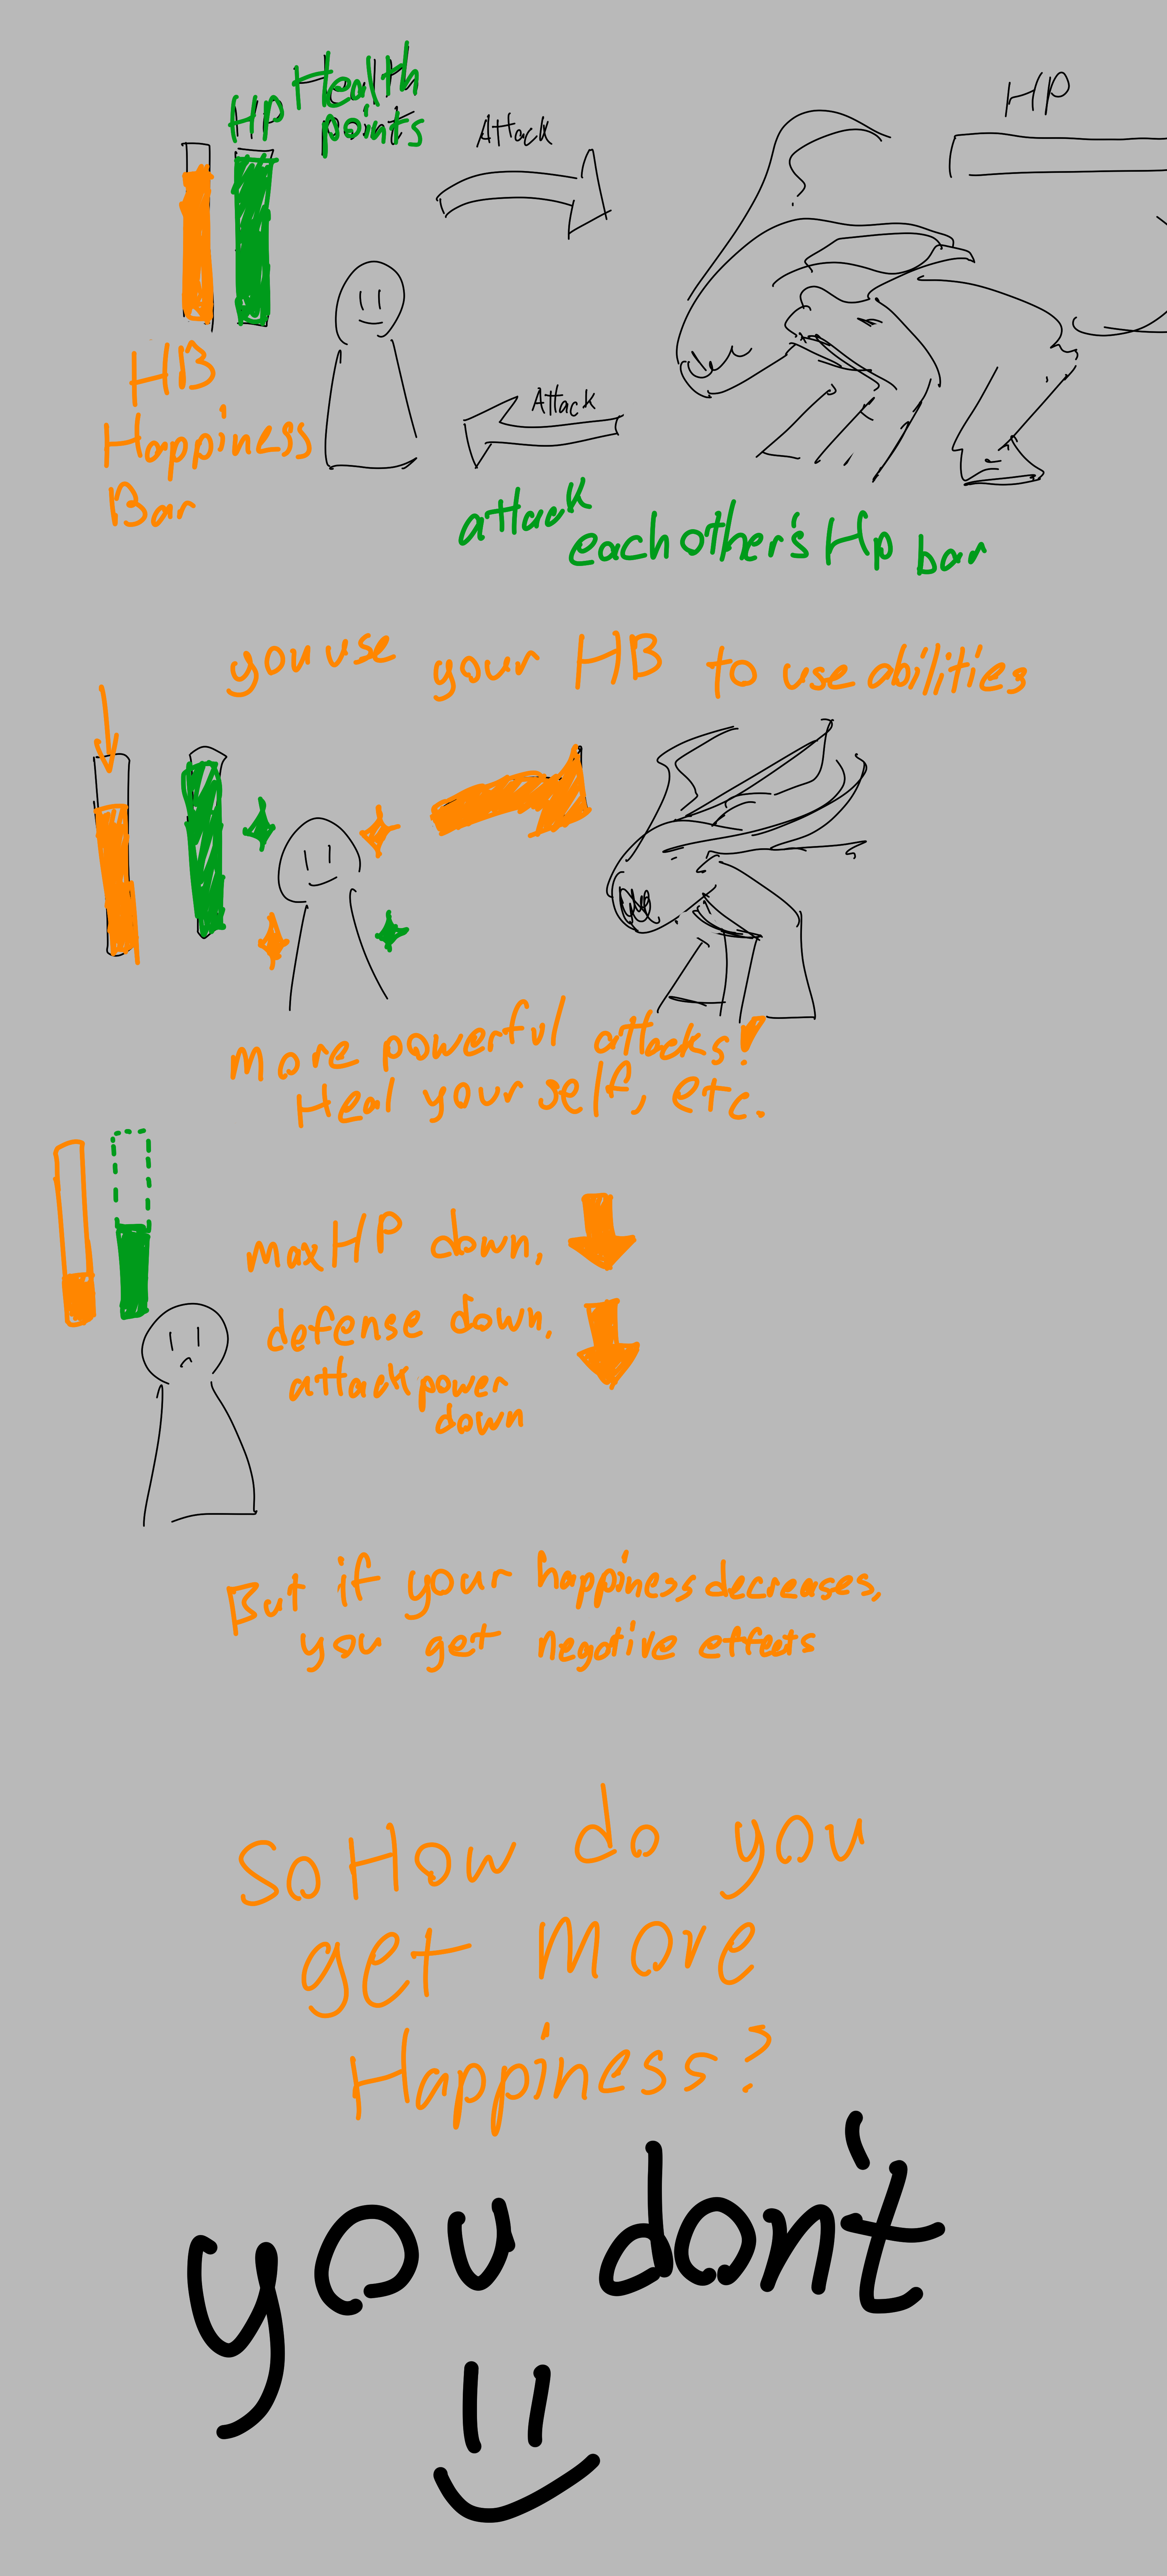 HP Health
points
Attack
HP
HB
Happiness
Bar
Attack
attack
each other's Hp bar
you use your HB to use abilities
More powerful attacks!
Heal your self, etc.
max HP down,
defense down,
attack power
down
But if your happiness decreases,
you get negative effects
So How do you
get More
Happiness?
you don't